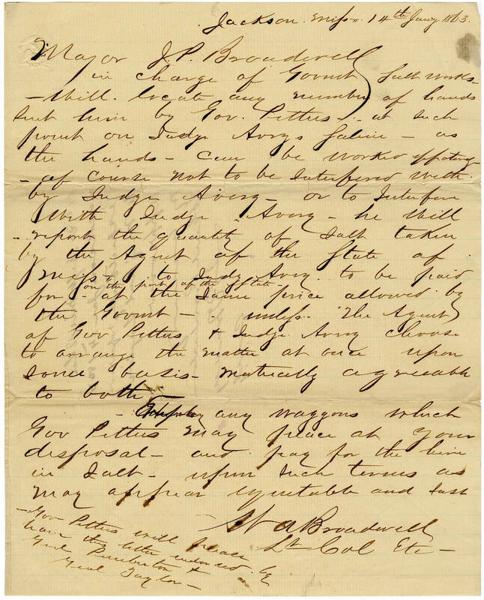 Jackson Miss. 14th Jany 1863.
Major J.P. Broadwell
in charge of Govmt Salt works
- Will locate any number of hands
sent him by Gov. Pettus - at such
point on Judge Averys Saline - as
the hands - can be worked
- of course not to be interfered with
by Judge Avery - or to interfere
with Judge Avery - he will
report the quantity of Salt taken
by the Agent of the State of
Miss. to Judge Avery to be paid
on the part of the State
for - at the same price allowed by
the Govmt - unless The Agent
of Gov Pettus & Judge Avery choose
to arrange the matter at once upon
some basis - mutually agreeable
to both
- Employ any waggons which
Gov Pettus may place at your
disposal - and pay for the hire
in Salt - upon such terms as
may appear equitable and just
W A Broadwell
Lt Col Etc -
- Gov Pettus will please
have the letter endorsed by
Genl Pemberton &
Genl Taylor -